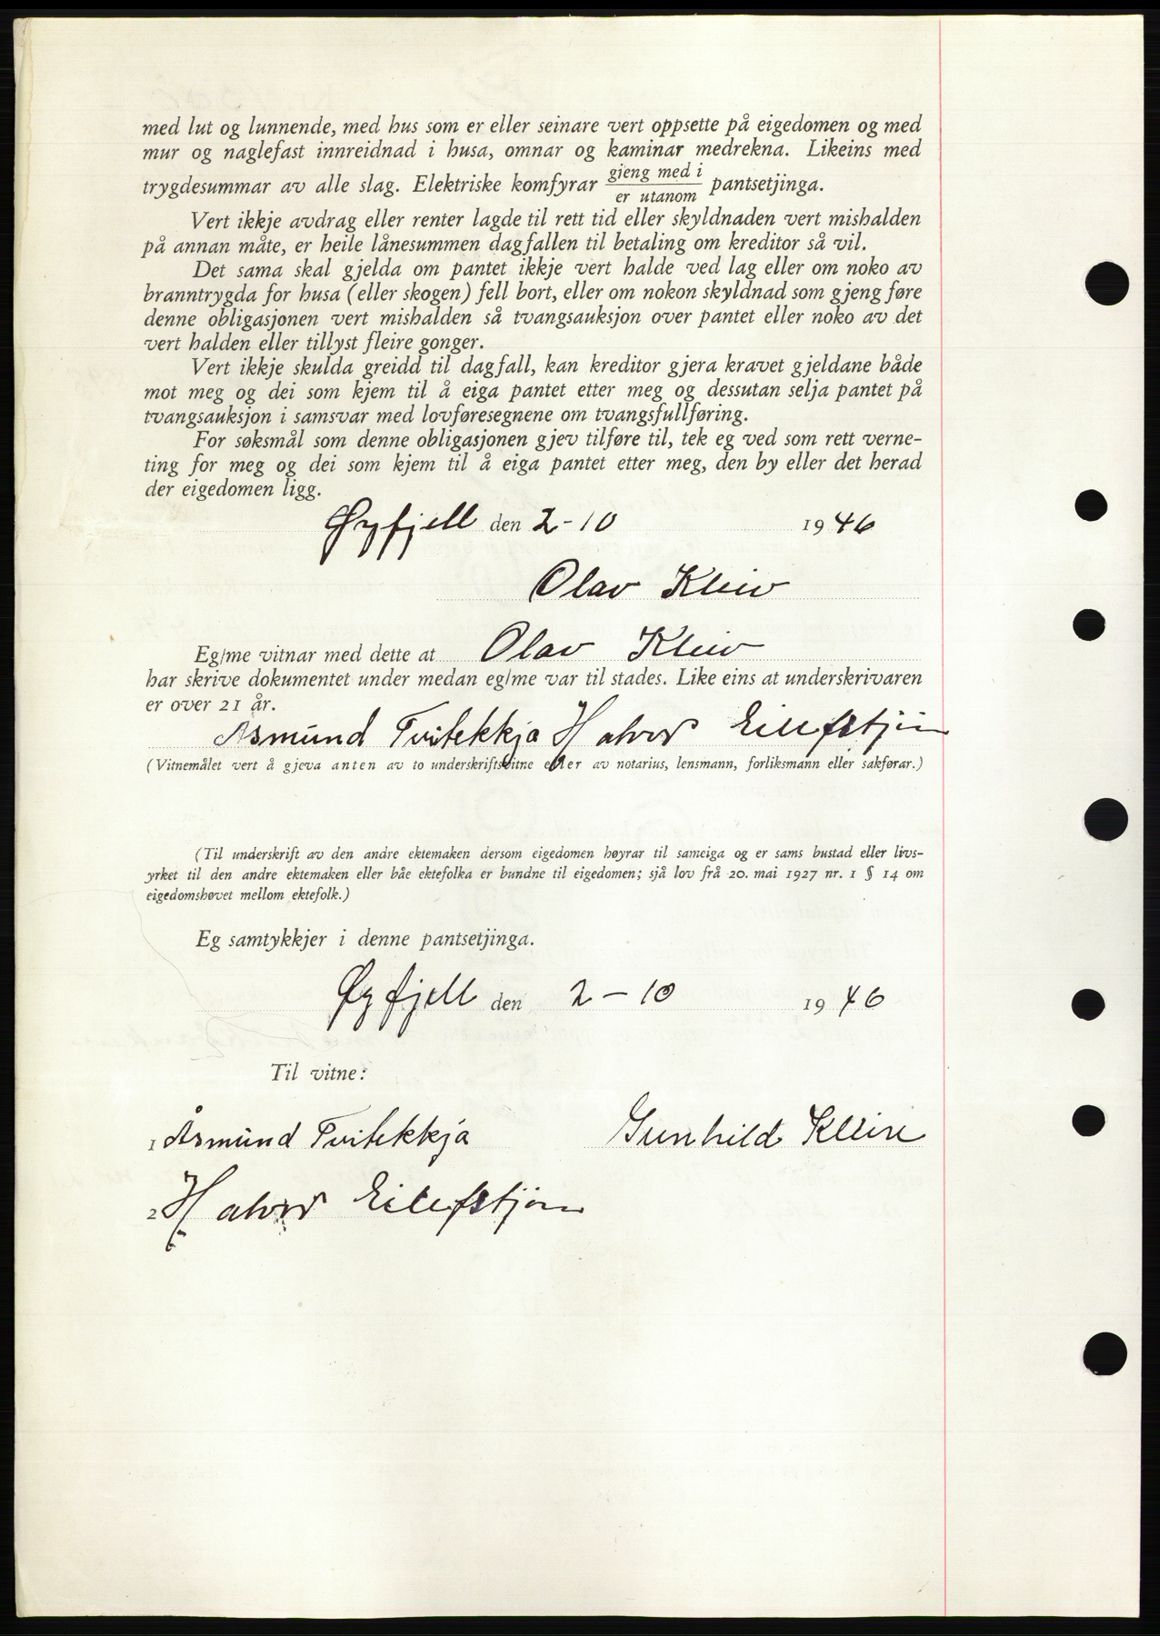 med lut og lunnende, med hus som er eller seinare vert oppsette på eigedomen og med
mur og naglefast innreidnad i husa, omnar og kaminar medrekna. Likeins med
trygdesummar av alle slag. Elektriske komfyrar gjeng med i / er utanom pantsetjinga.
Vert ikkje avdrag eller renter lagde til rett tid eller skyldnaden vert mishalden
på annan måte, er heile lånesummen dagfallen til betaling om kreditor så vil.
Det sama skal gjelda om pantet ikkje vert halde ved lag eller om noko av
branntrygda for husa (eller skogen) fell bort, eller om nokon skyldnad som gjeng føre
denne obligasjonen vert mishalden så tvangsauksjon over pantet eller noko av det
vert halden eller tillyst fleire gonger.
Vert ikkje skulda greidd til dagfall, kan kreditor gjera kravet gjeldane både
mot meg og dei som kjem til å eiga pantet etter meg og dessutan selja pantet på
tvangsauksjon i samsvar med lovføresegnene om tvangsfullføring.
For søksmål som denne obligasjonen gjev tilføre til, tek eg ved som rett verne-
ting for meg og dei som kjem til å eiga pantet etter meg, den by eller det herad
der eigedomen ligg.
Øyfjell den 2-10 1946
Olav Kleiv
Eg/me vitnar med dette at Olav Kleiv
har skrive dokumentet under medan eg/me var til stades. Like eins at underskrivaren
er over 21 år.
Åsmund Tvitekkja Halvor Eilefstjønn
(Vitnemålet vert å gjeva anten av to underskriftsvitne eller av notarius, lensmann, forliksmann eller sakførar.)
(Til underskrift av den andre ektemaken dersom eigedomen høyrar til sameiga og er sams bustad eller livs-
yrket til den andre ektemaken eller båe ektefolka er bundne til eigedomen; sjå lov frå 20. mai 1927 nr. 1 § 14 om
eigedomshøvet mellom ektefolk.)
Eg samtykkjer i denne pantsetjinga.
Øyfjell den 2-10 1946
Til vitne:
1 Åsmund Tvitekkja Gunhild Kleiv
2 Halvor Eilefstjønn